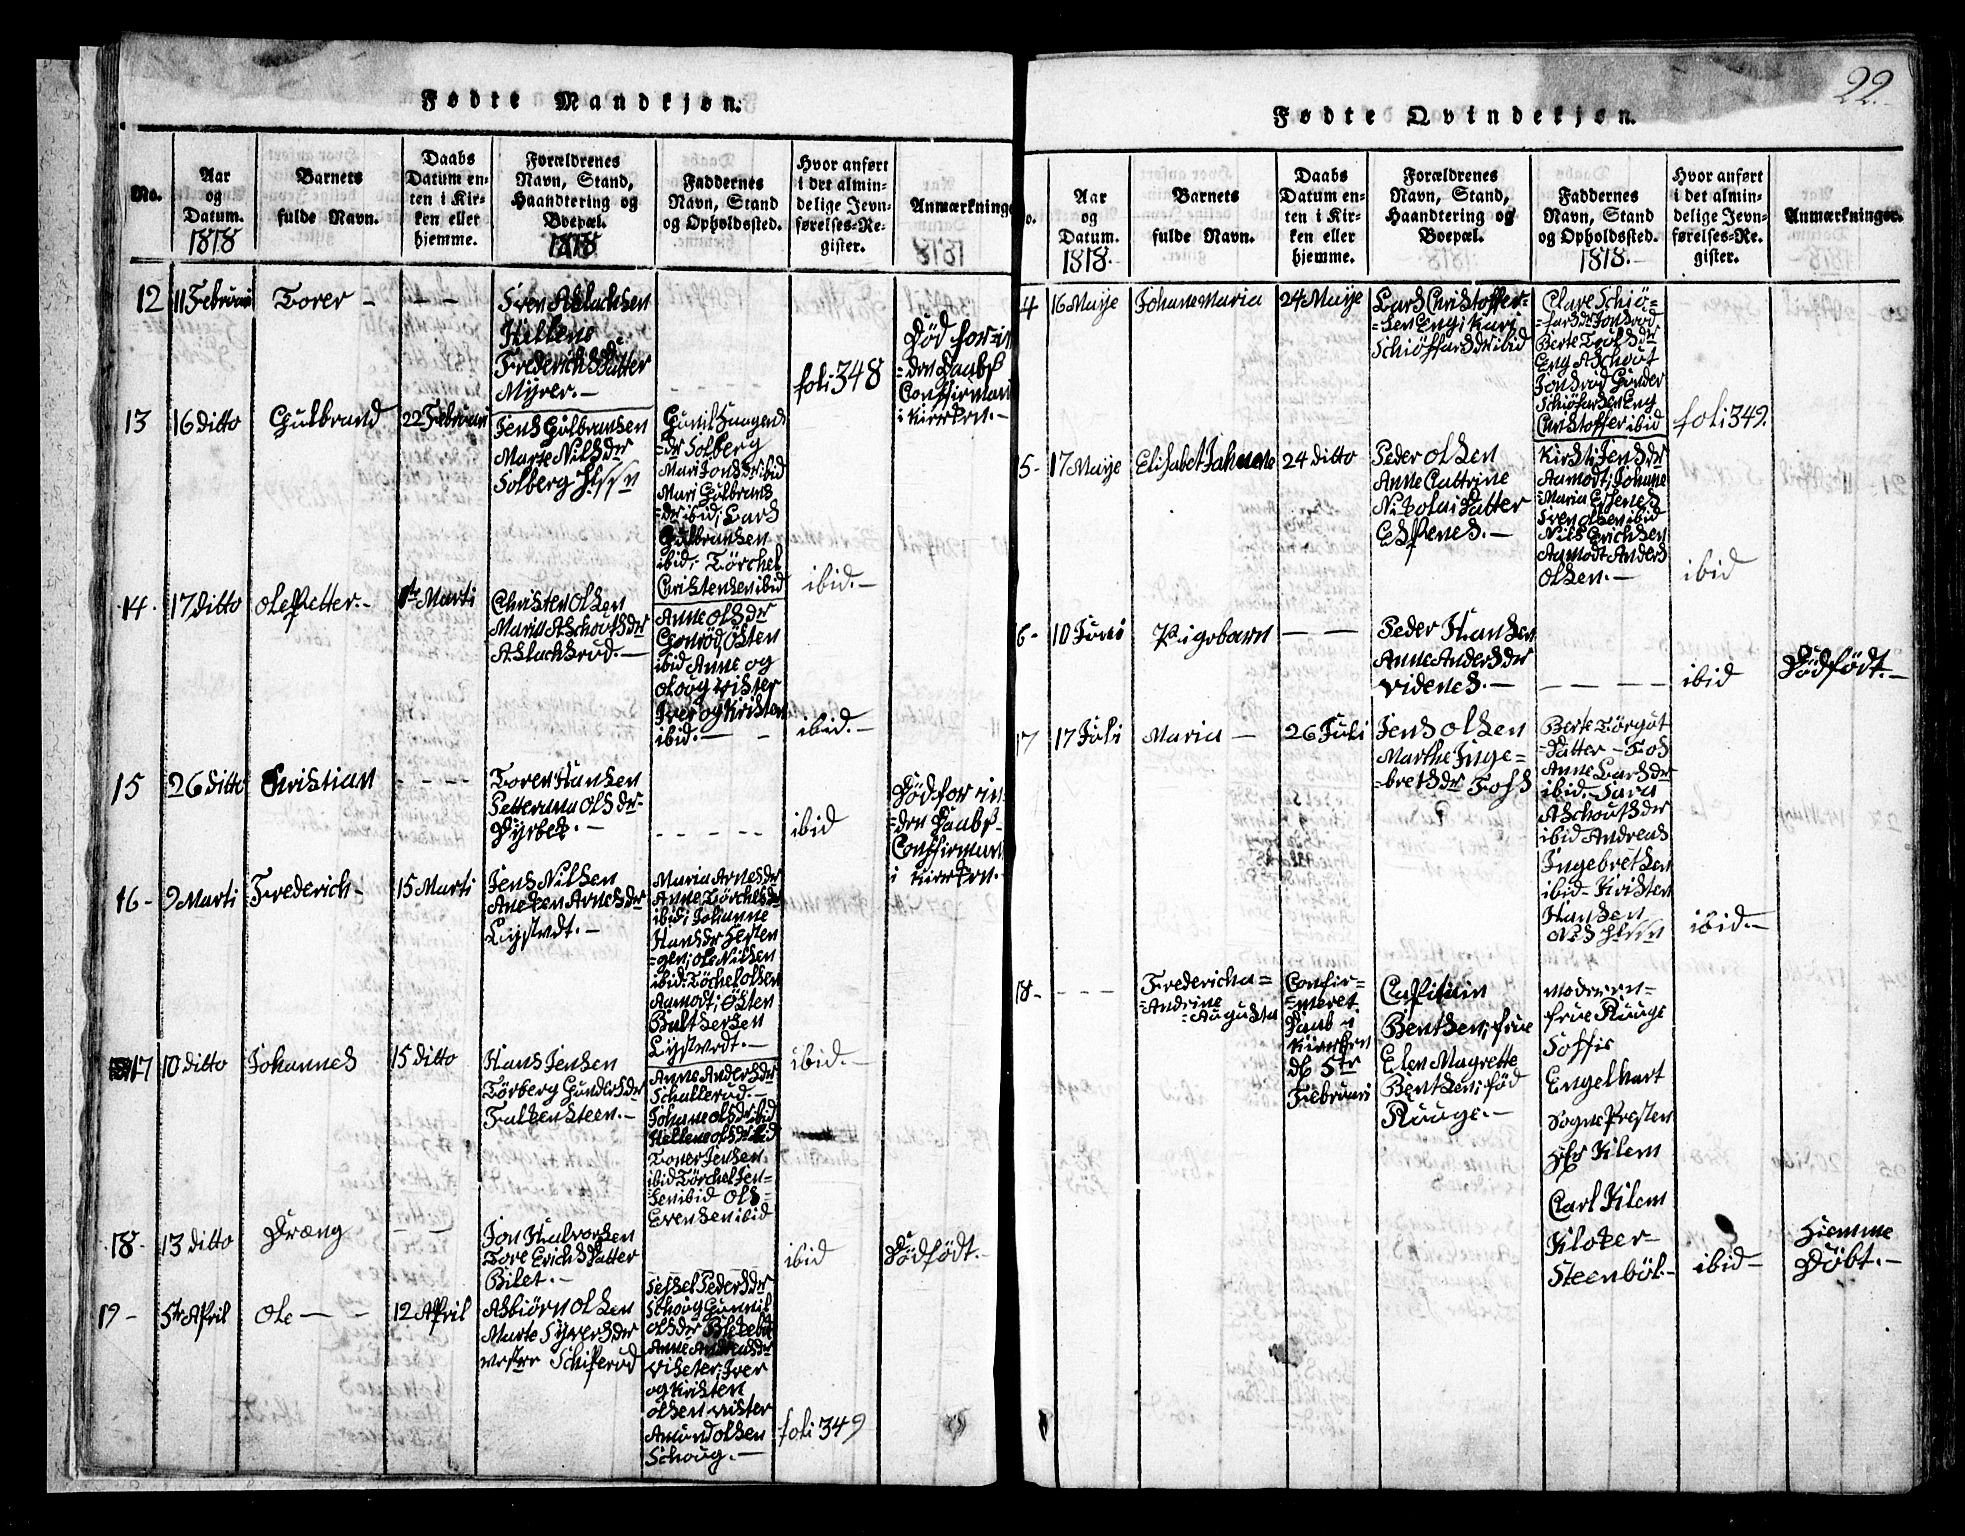 22.
Fødte Mandkjøn.
No.
Aar
og
Datum.
1818
Barnets
fulde Navn.
Daabs
Datum en-
ten i Kir-
ken eller
hjemme.
Forældrenes
Navn, Stand,
Haandtering og
Boepæl.
1818
Faddernes
Navn, Stand
og Opholdssted.
Hvor anført
i det almin-
delige Jevn-
førelses-Re-
gister.
Anmærkninge
12
11 Februari
Torer -
- -
Sven Aslachsen
Hellene
Frederichsdatter
Myrer. -
- - - -
foli 348
Død forin
=den Daabs
Conffirmari
i Kierken. -
13
16 ditto
Gulbrand
22 Februari
Jens Gulbransen
Marte Nilsdr
Solberg
Solberg
Mari Jonsdr ibid
Mari Gulbrans
=dr ibid, Lars
Gulbransen
ibid, Törchel
Christensen ibid
ibid. -
14
17 ditto
Ole Petter. -
1te Marti
Christen Olsen
Maria Aschoutsdr
Aslachsrud. -
Anne Olsdr
ibid Anne og
Iver og Kristen
ibid. - -
ibid. -
15
26 ditto
Kristian
- - - -
Toren Hansen
Petterina Olsdr
- - - - -
ibid
Död forin
=den Daabs
Conffirmari
i Kierken. -
16 -
9 Marti
Frederich -
15 Marti
Jens Nilsen
Aneken Arnesdr
Maria Arnesdr
Anne Törchelsdr
ibid, Johanne
Hansdr Hesten
=gen, Ole Nilsen
ibid. Töchel Olsen
Aamodt, Östen
Baltsersen
ibid. -
17
10 ditto
Johannes
15 ditto
Hans Jensen
Törberg Gundersdr
Falkensteen. -
Anne Andersdr
Schallerud. -
Johane Olsdr ibid
Hellene Olsdr ibid
Torer Jensen
ibid Törchel Jen-
sen ibid Ols-
Evensen ibid
18 -
13 ditto
Dræng
- -
Jon Halvorsen
Tore Erichsdatter
Bilet. -
ibid
Dödfödt. -
19 -
5te April
Ole - -
12 April
Asbiörn Olsen
Marte Syversdr
vestre Schiperud
Sessel Pedersdr
Schoug Gunnil
Olsdr
Anne Andreasdr
Iver
og Kristen
Olsen
Amund Olsen
Schoug. -
foli 349
Fødte Qvindekjøn.
o.
Aar
og
Datum.
1818.
Barnets
fulde Navn.
Daabs
Datum en-
ten i Kir-
ken eller
hjemme.
Forældrenes
Navn, Stand,
Haandtering og
Boepæl.
Faddernes
Navn, Stand
og Opholdssted.
1818.
Hvor anført
i det almin-
delige Jevn-
førelses-Re-
gister.
Anmærkninger.
4
16 Maye
Johane Maria
24 Maye
Lars Christoffer-
=sen Eng, Kari
ibid
Jonsrud
Berte Trolsdr
Eng Aschout
Jonsrud Gunder
Eng
Christoffer ibid
foli 349.
5 -
17 Maye
Elisabet Johanne
24 ditto
Peder Olsen
Anne Cattrine
Nikolaidatter
Espenes. -
Kirsti Jensdr
Aamodt, Johane
=Maria Espenes
Sven Olsen ibid
Nils Erichsen
Aamodt Anders
Olsen. -
ibid
6 -
10 Juni
Pigebarn
- -
Peder Hansen
Anne Andersdr
Videnes. -
- - -
ibid
Dödfödt. -
17
17 Juli
Maria -
26 Juli
Jens Olsen
Marthe Inge-
=bretsdr Foss
Berte Törgut
=datter - Fos
Anne Larsdr
ibid - Sara
Aschoutsdr
ibid Andreas
Ingebretsen
ibid - Kristen
Hansen
ibid. -
18 -
- - -
Fredericha =
=Andrine
=Augusta
Confir-
=meret
Daab i
Kierchen
d. 5te
Februari
Capitain
Bentsen, frue
Elen Magrette
Bentsen, föd
Ruuge. -
moderen -
frue Ruuge
Soffie
Engelhart
Sogne Presten
Hr Klem
Carl Klem
Kloker
Steenböl. -
ibid -
Hiemme
Döbt. -